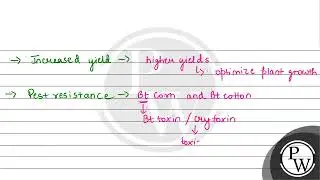 → Increased yield → higher yields
↳ optimize plant growth
→ Pest resistance → Bt corn and Bt cotton
↓
Bt toxin / cry toxin
↓
toxi-
PW